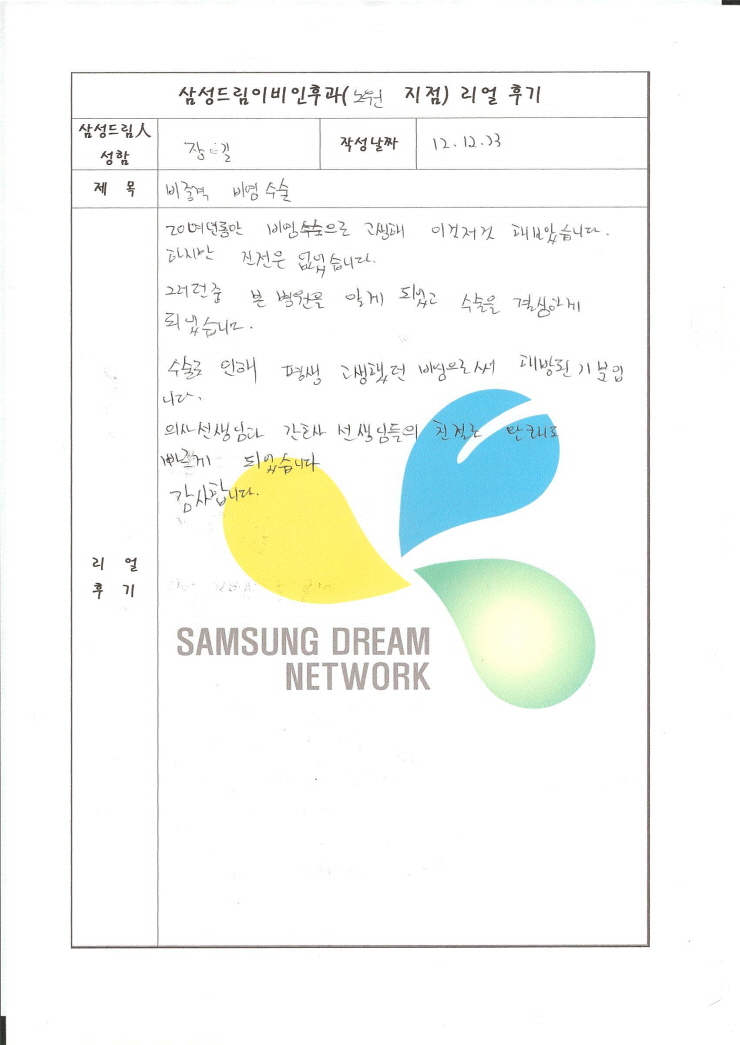 삼성드림이비인후과(노원 지점) 리얼 후기
삼성드림人 성함
장 길
작성날짜
12.12.23
제 목
비중격 비염 수술
리 얼 후 기
20여년동안 비염으로 고생해 이것저것 해보았습니다.
하지만 진전은 없었습니다.
그러던중 본 병원을 알게 되었고 수술을 결심하게
되었습니다.
수술로 인해 평생 고생했던 비염으로써 해방된 기분입
니다.
의사선생님과 간호사 선생님들의 친절로 한크리도
빠르게 되었습니다
감사합니다.
SAMSUNG DREAM
NETWORK